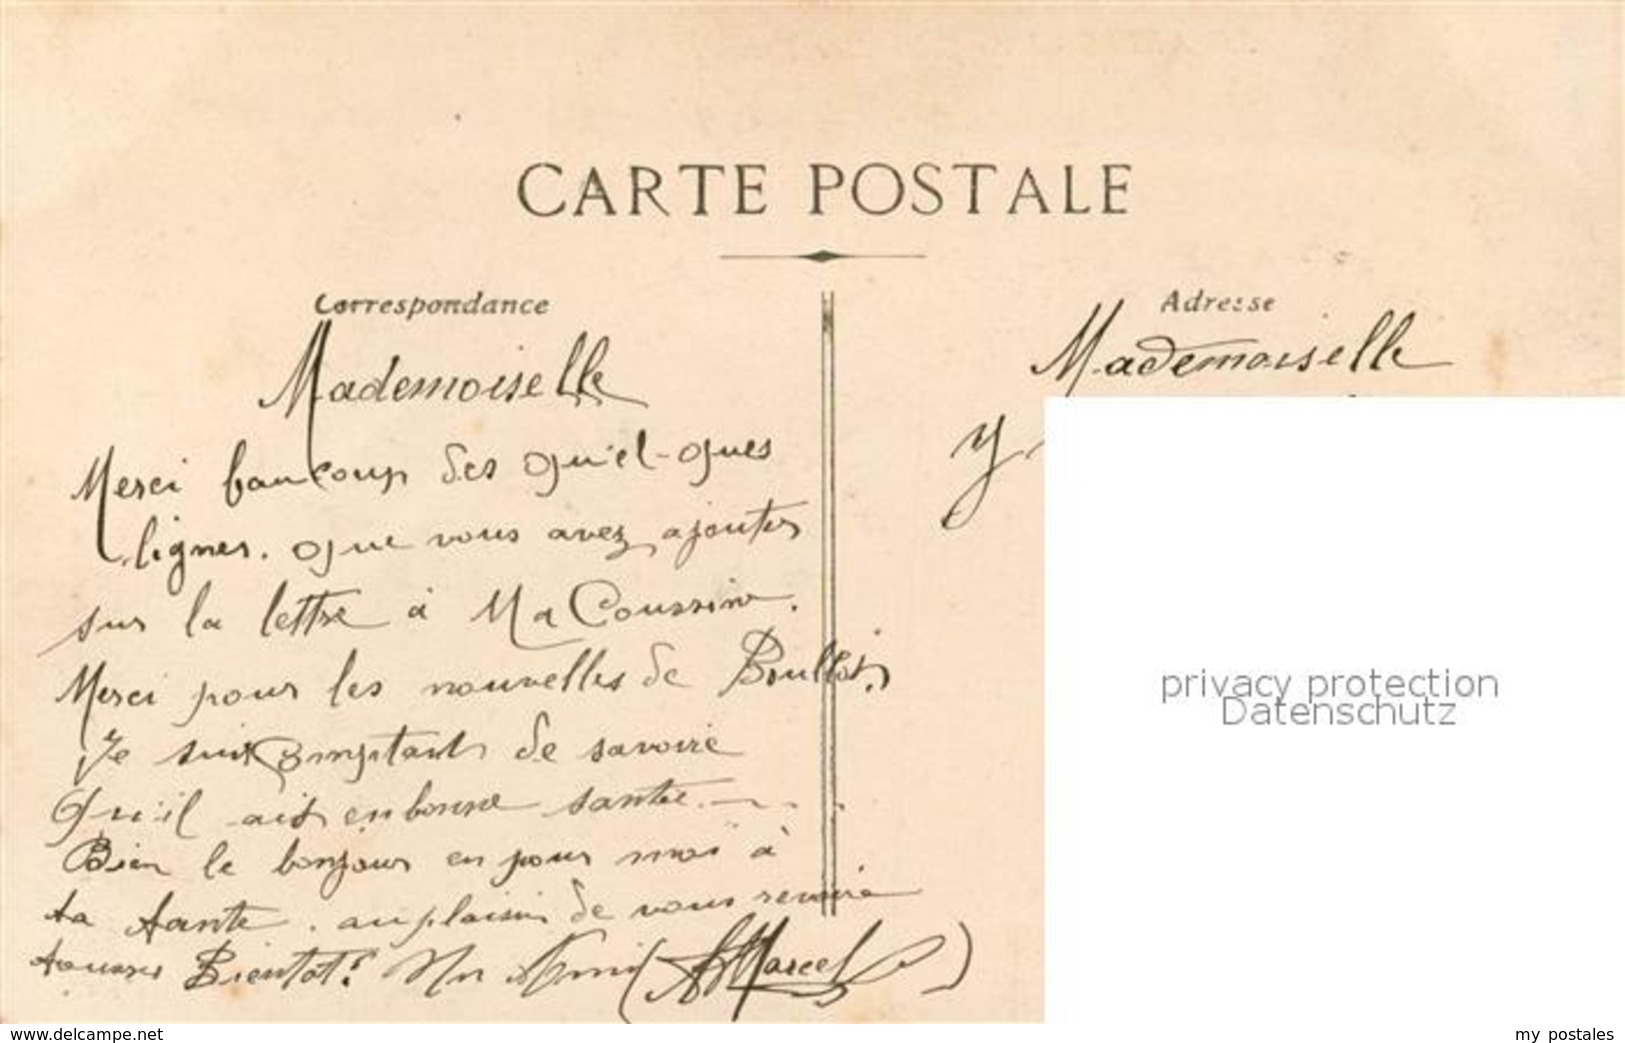 CARTE POSTALE
Correspondance
Adresse
Mademoiselle
Mademoiselle
Merci baucoup des qu'el-ques
lignes. que vous avez ajouter
sur la lettre à Ma Coussine.
Merci pour les nouvelles de
Je suis comptant de savoire
Qu'il ait en bonne santée.
Bien le bonjour en pour moi à
ta tante. au plaisir de vous revoire
Bientot! Un Ami (Marcel)
y
privacy protection
Datenschutz
www.delcampe.net
my postales